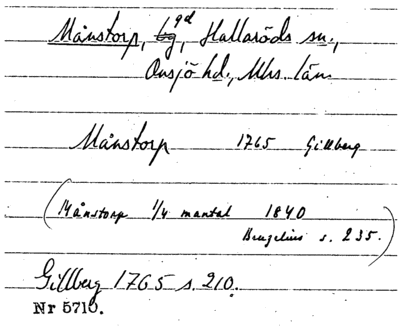 Månstorp, gd, Hallaröds sn.,
Onsjö hd., Mhs. län
Månstorp 1765 Gillberg
(Månstorp 1/4 mantal 1840
Bruzelius s. 235.)
Gillberg 1765 s. 210.
Nr 5710.